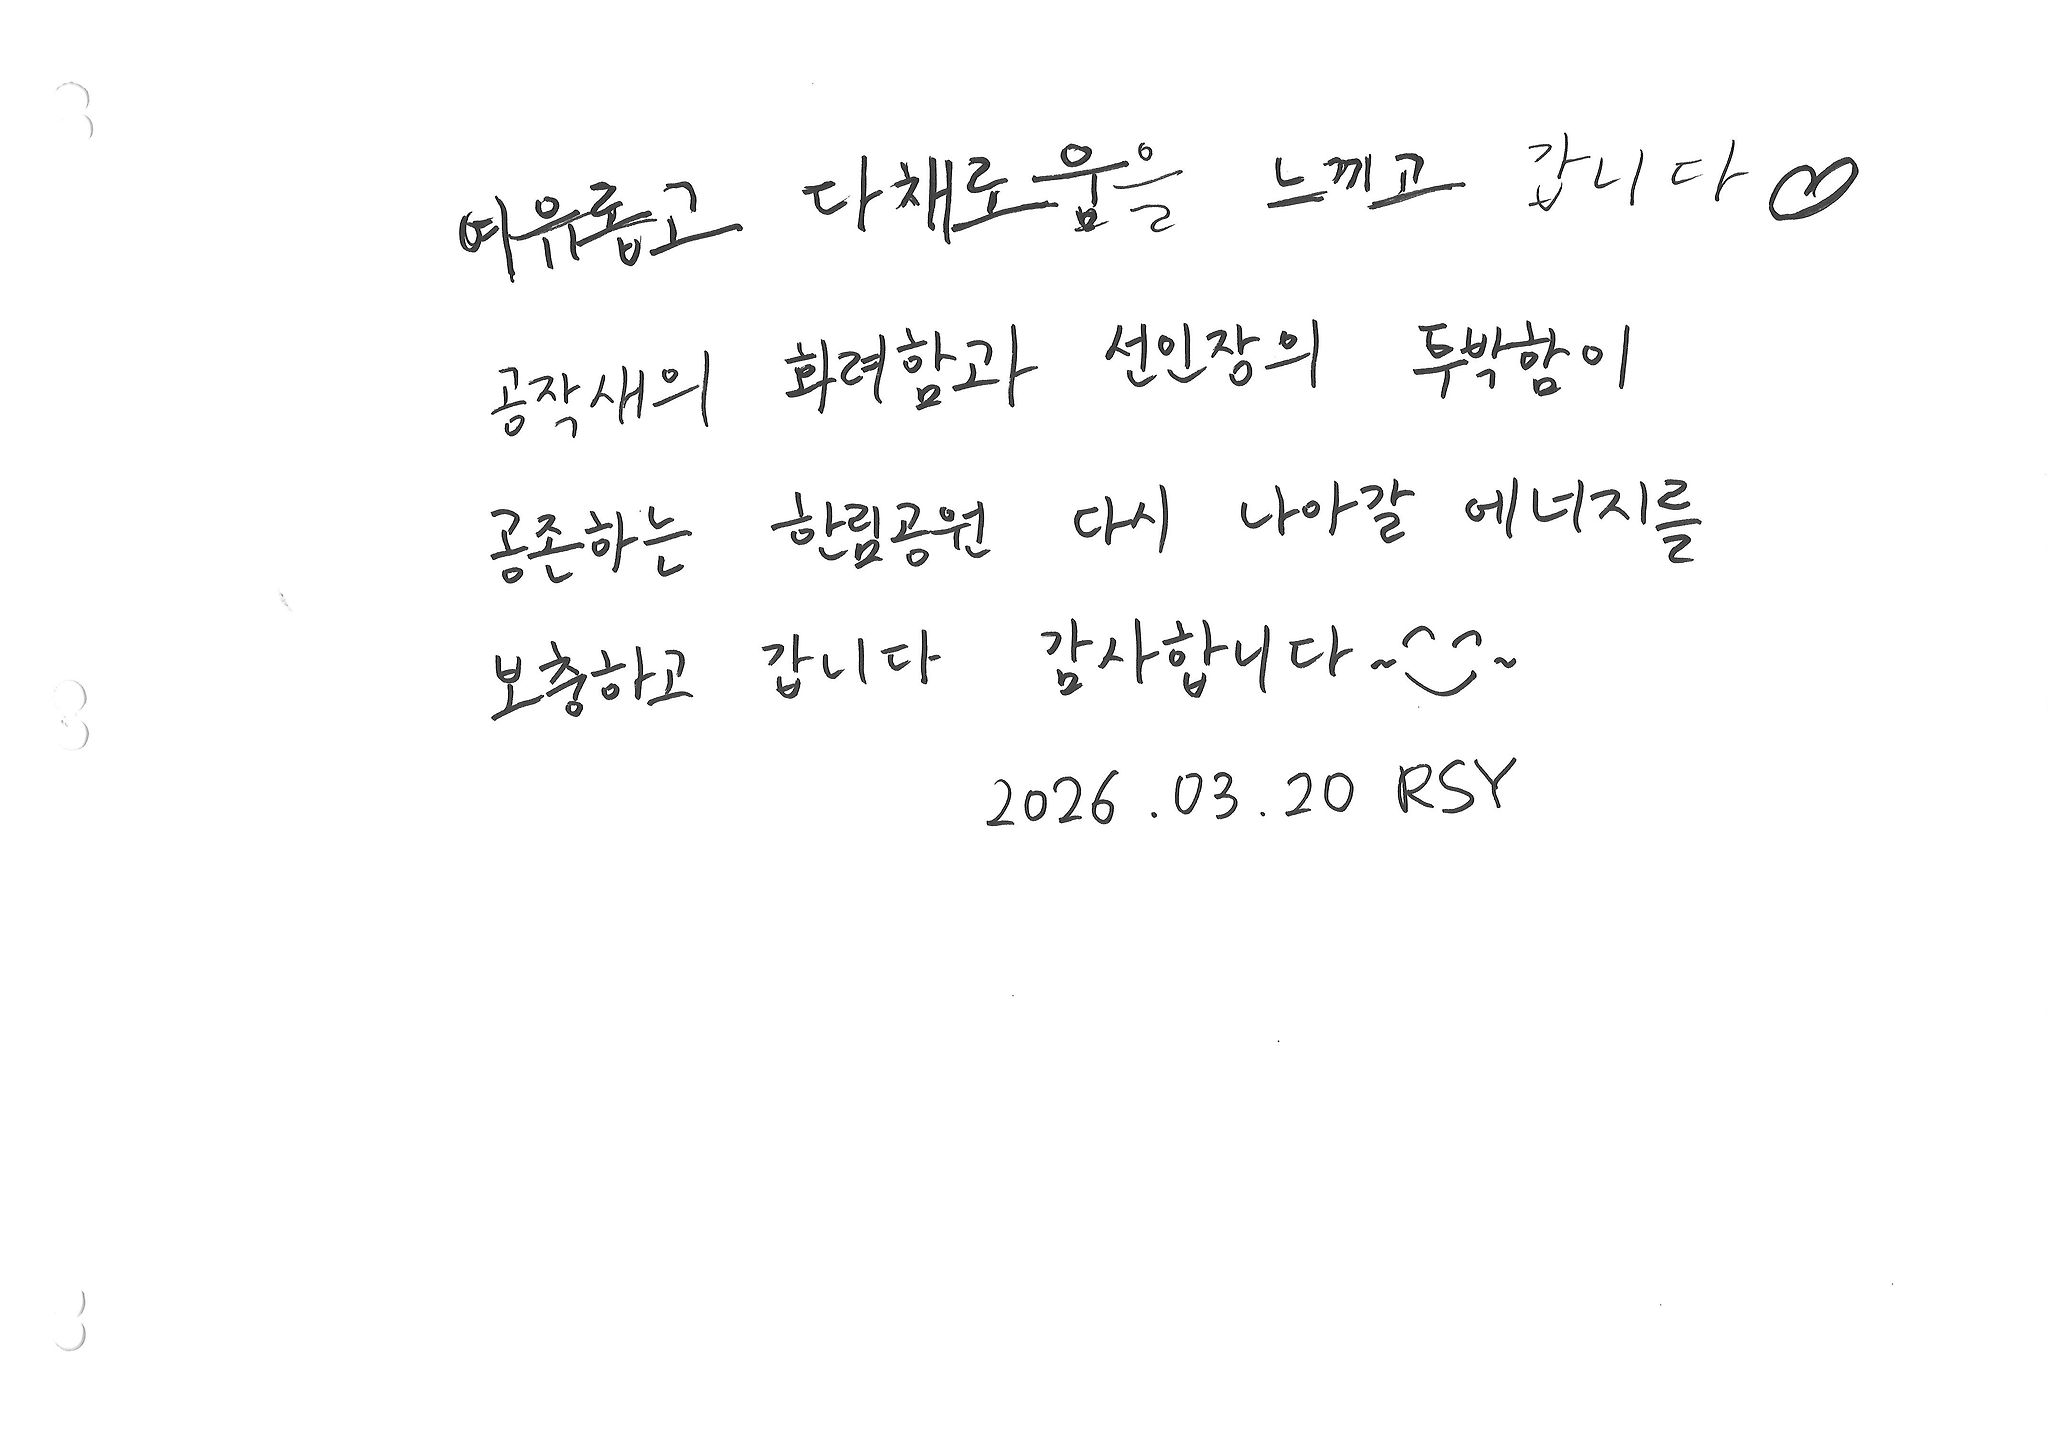 여유롭고 다채로움을 느끼고 갑니다♡
공작새의 화려함과 선인장의 투박함이
공존하는 한림공원 다시 나아갈 에너지를
보충하고 갑니다 감사합니다~^^~
2026.03.20 RSY